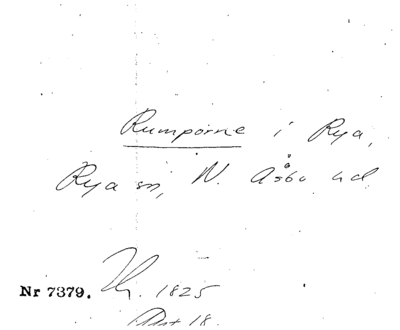 Rumporne i Rya,
Rya sn, N. Åsbo hd
Nr 7379. Th. 1825